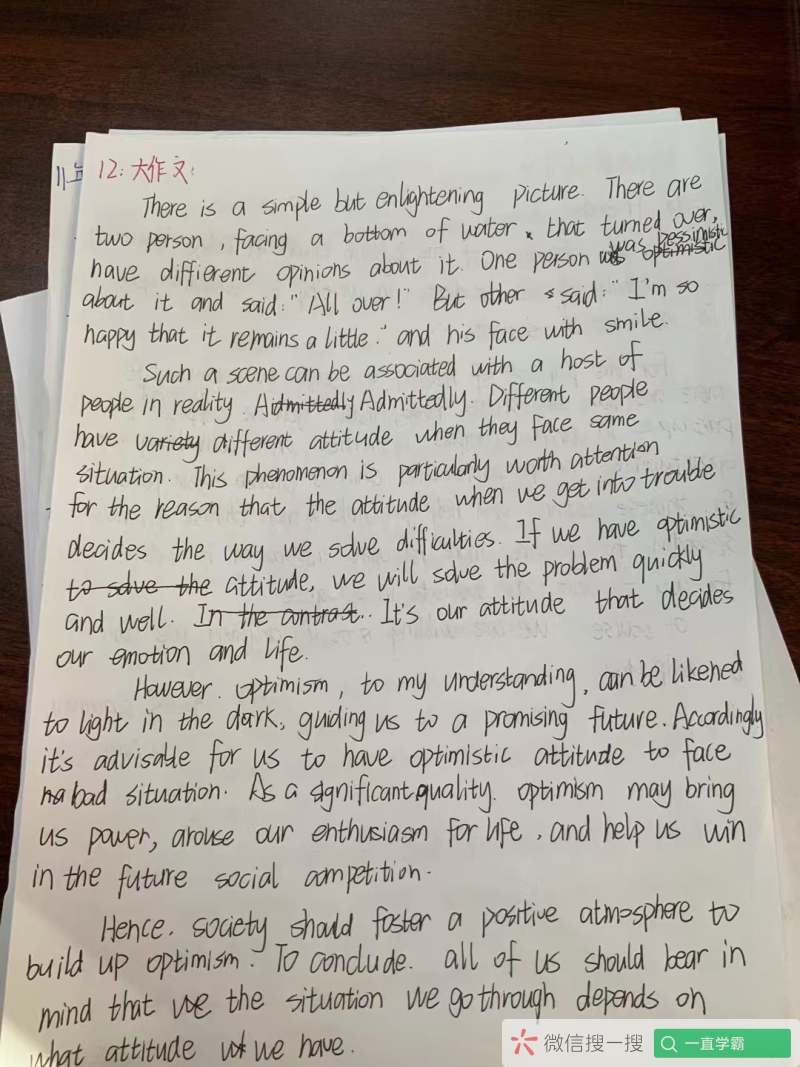 12:大作文:
There is a simple but enlightening picture. There are
two person, facing a bottom of water that turned over,
have diffierent opinions about it. One person was pessimistic
about it and said:"All over!" But other said:"I'm so
happy that it remains a little." and his face with smile.
Such a scene can be associated with a host of
people in reality. Admittedly Admittedly. Different people
have variety different attitude when they face same
situation. This phenomenon is particularly worth attention
for the reason that the attitude when we get into trouble
decides the way we solve difficulties. If we have optimistic
to solve the attitude, we will solve the problem quickly
and well. In the contrast.. It's our attitude that decides
our emotion and life.
However. optimism, to my understanding, can be likened
to light in the dark, guiding us to a promising future. Accordingly
it's advisable for us to have optimistic attitude to face
bad situation. As a significant quality. optimism may bring
us power, arouse our enthusiasm for life, and help us win
in the future social competition.
Hence. society should foster a positive atmosphere to
build up optimism. To conclude. all of us should bear in
mind that the situation we go through depends on
what attitude we have.
微信搜一搜
一直学霸